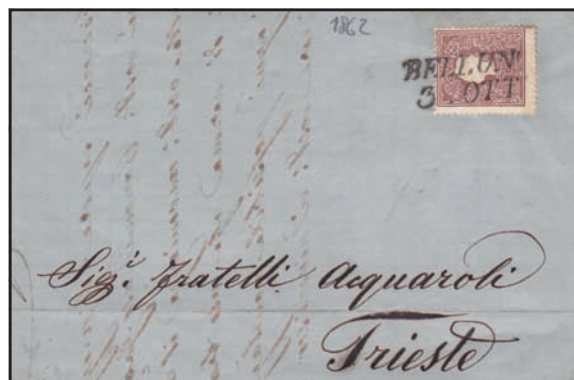 1862
BELLUN!
3 OTT
Sig.i fratelli Acquaroli
Trieste